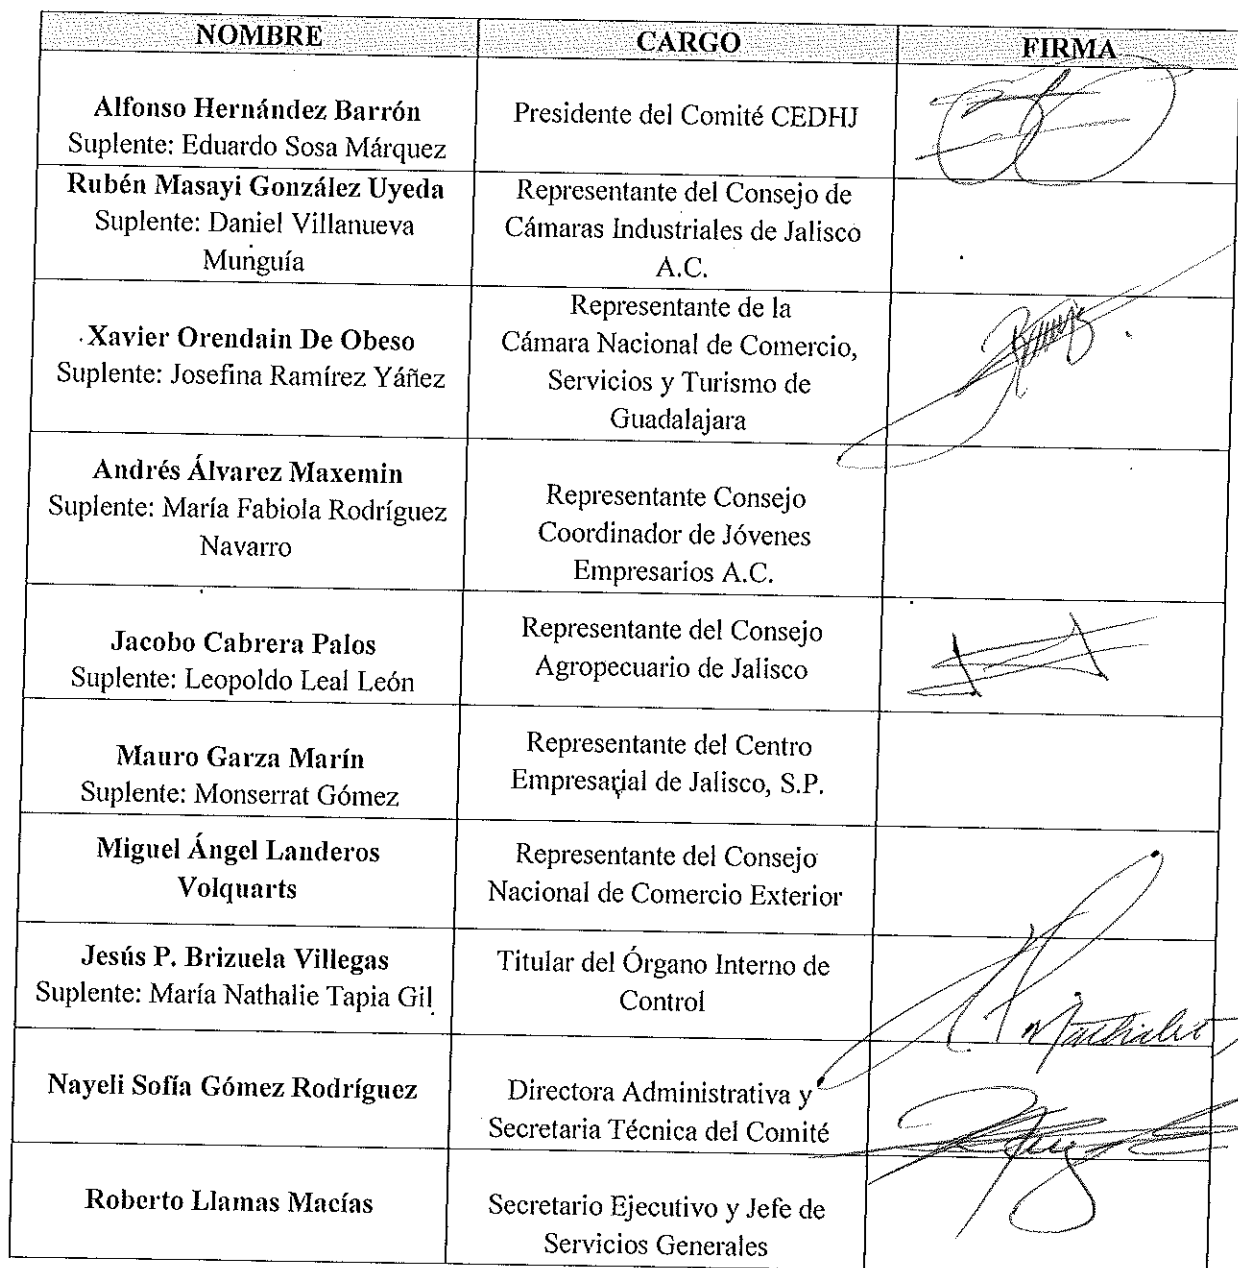 NOMBRE CARGO FIRMA
Alfonso Hernández Barrón
Suplente: Eduardo Sosa Márquez
Presidente del Comité CEDHJ
Rubén Masayi González Uyeda
Suplente: Daniel Villanueva
Munguía
Representante del Consejo de
Cámaras Industriales de Jalisco
A.C.
Xavier Orendain De Obeso
Suplente: Josefina Ramírez Yáñez
Representante de la
Cámara Nacional de Comercio,
Servicios y Turismo de
Guadalajara
Andrés Álvarez Maxemin
Suplente: María Fabiola Rodríguez
Navarro
Representante Consejo
Coordinador de Jóvenes
Empresarios A.C.
Jacobo Cabrera Palos
Suplente: Leopoldo Leal León
Representante del Consejo
Agropecuario de Jalisco
Mauro Garza Marín
Suplente: Monserrat Gómez
Representante del Centro
Empresarial de Jalisco, S.P.
Miguel Ángel Landeros
Volquarts
Representante del Consejo
Nacional de Comercio Exterior
Jesús P. Brizuela Villegas
Suplente: María Nathalie Tapia Gil
Titular del Órgano Interno de
Control
Nathalie
Nayeli Sofía Gómez Rodríguez
Directora Administrativa y
Secretaria Técnica del Comité
Roberto Llamas Macías
Secretario Ejecutivo y Jefe de
Servicios Generales